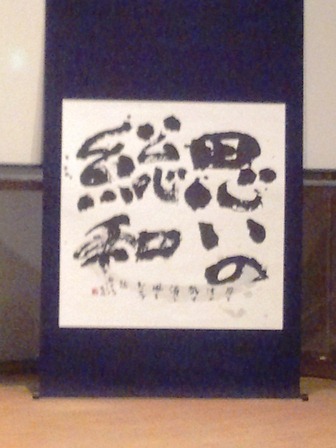 思いの
総和